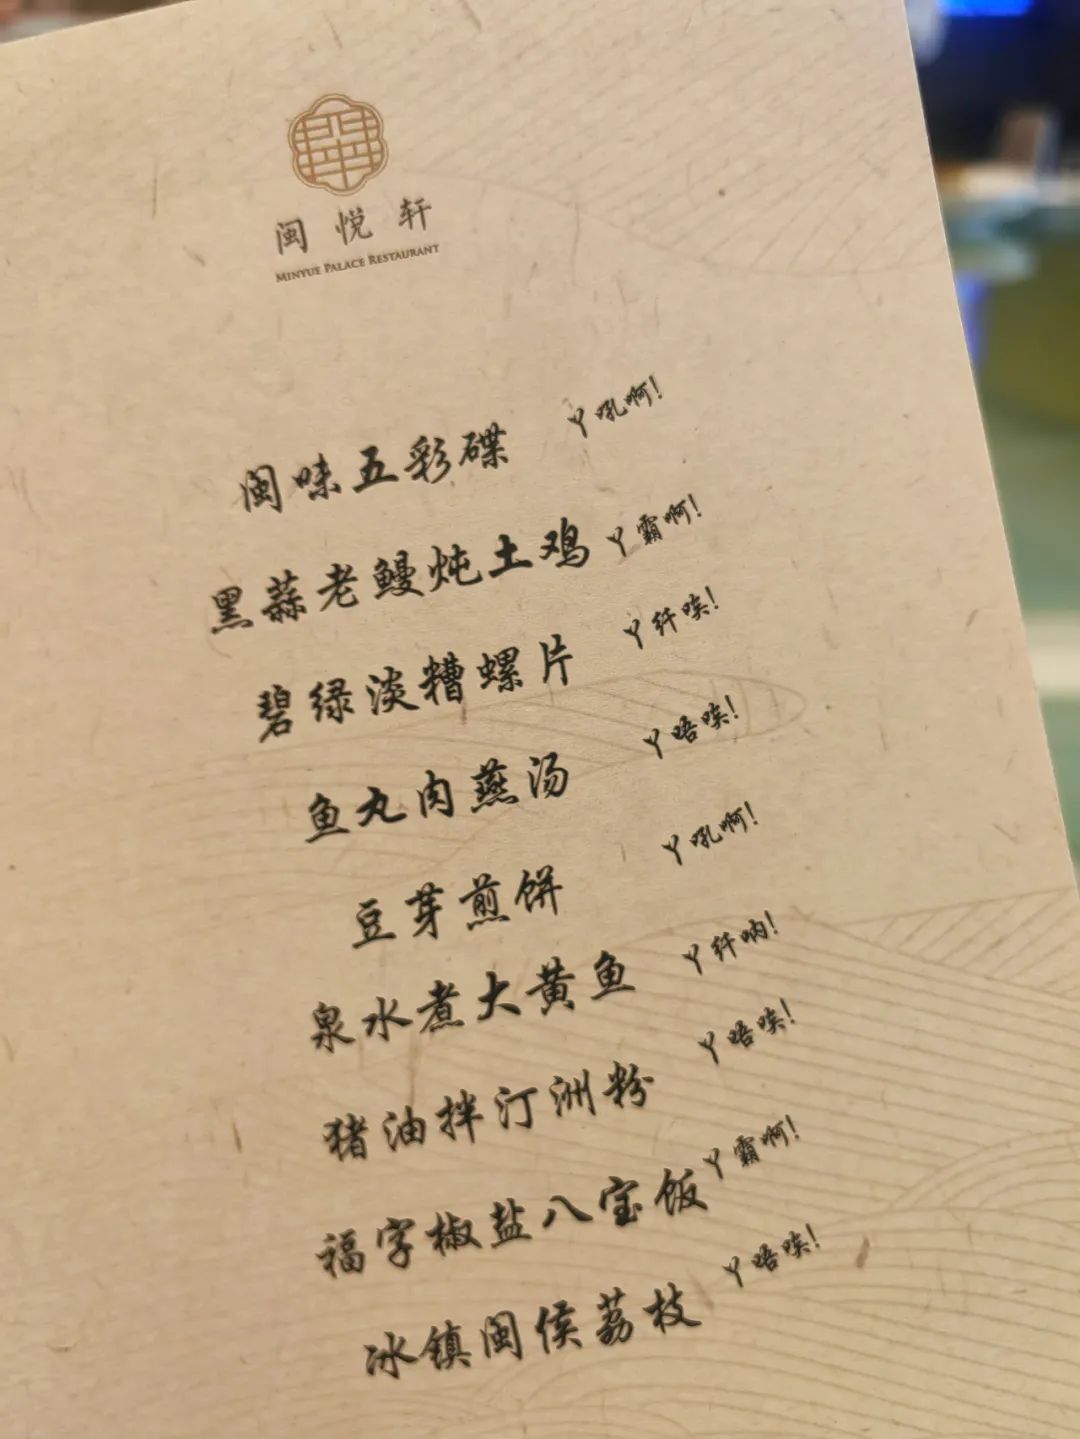 闽悦轩
MINYUE PALACE RESTAURANT
闽味五彩碟 丫吼啊!
黑蒜老鳗炖土鸡 丫霸啊!
碧绿淡糟螺片 丫纤唉!
鱼丸肉燕汤 丫唔唉!
豆芽煎饼 丫吼啊!
泉水煮大黄鱼 丫纤呐!
猪油拌汀洲粉 丫唔唉!
福字椒盐八宝饭 丫霸啊!
冰镇闽侯荔枝 丫唔唉!